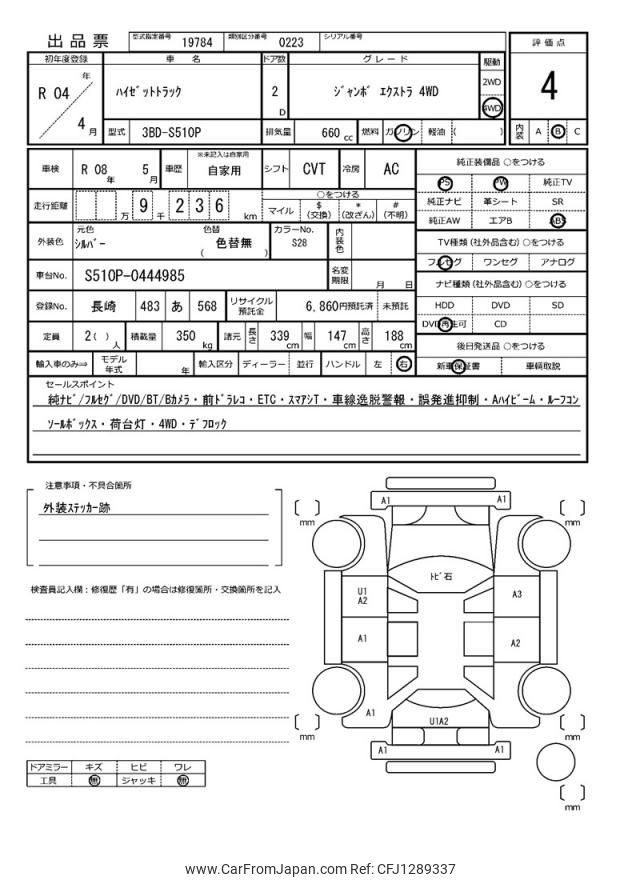 出品票 型式指定番号 19784 類別区分番号 0223 シリアル番号
評価点
初年度登録 車名 ドア数 グレード 駆動
R 04 年 ハイゼットトラック 2 D ジャンボ エクストラ 4WD 2WD 4WD
4
4 月 型式 3BD-S510P 排気量 660 cc 燃料 ガソリン 軽油 ( ) 内装 A B C
車検 R 08 年 5 月 車歴 ※未記入は自家用 自家用 シフト CVT 冷房 AC
純正装備品 ○をつける
PS PW 純正TV
純正ナビ 革シート SR
純正AW エアB ABS
走行距離 万 9 千 2 3 6 km ○をつける マイル $ (交換) * (改ざん) # (不明)
外装色 元色 シルバー 色替 ( 色替無 ) カラーNo. S28 内装色
TV種類 (社外品含む) ○をつける
フルセグ ワンセグ アナログ
車台No. S510P-0444985 名変期限 月 日
ナビ種類 (社外品含む) ○をつける
HDD DVD SD
DVD再生可 CD
登録No. 長崎 483 あ 568 リサイクル預託金 6,860円預託済 未預託
定員 2 ( ) 人 積載量 350 kg 諸元 長さ 339 cm 幅 147 cm 高さ 188 cm
後日発送品 ○をつける
新車保証書 車輌取説
輸入車のみ⇒ モデル年式 年 輸入区分 ディーラー 並行 ハンドル 左 右
セールスポイント
純ナビ/フルセグ/DVD/BT/Bカメラ・前ドラレコ・ETC・スマアシT・車線逸脱警報・誤発進抑制・Aハイビーム・ルーフコン
ソールボックス・荷台灯・4WD・デフロック
注意事項・不具合箇所
外装ステッカー跡
検査員記入欄：修復歴「有」の場合は修復箇所・交換箇所を記入
A1 A1
mm mm
トビ石
U1
A2
A3
A1
A2
A1
U1A2
mm mm
A1 A1
mm
ドアミラー キズ ヒビ ワレ
工具 無 ジャッキ 無
www.CarFromJapan.com Ref: CFJ1289337